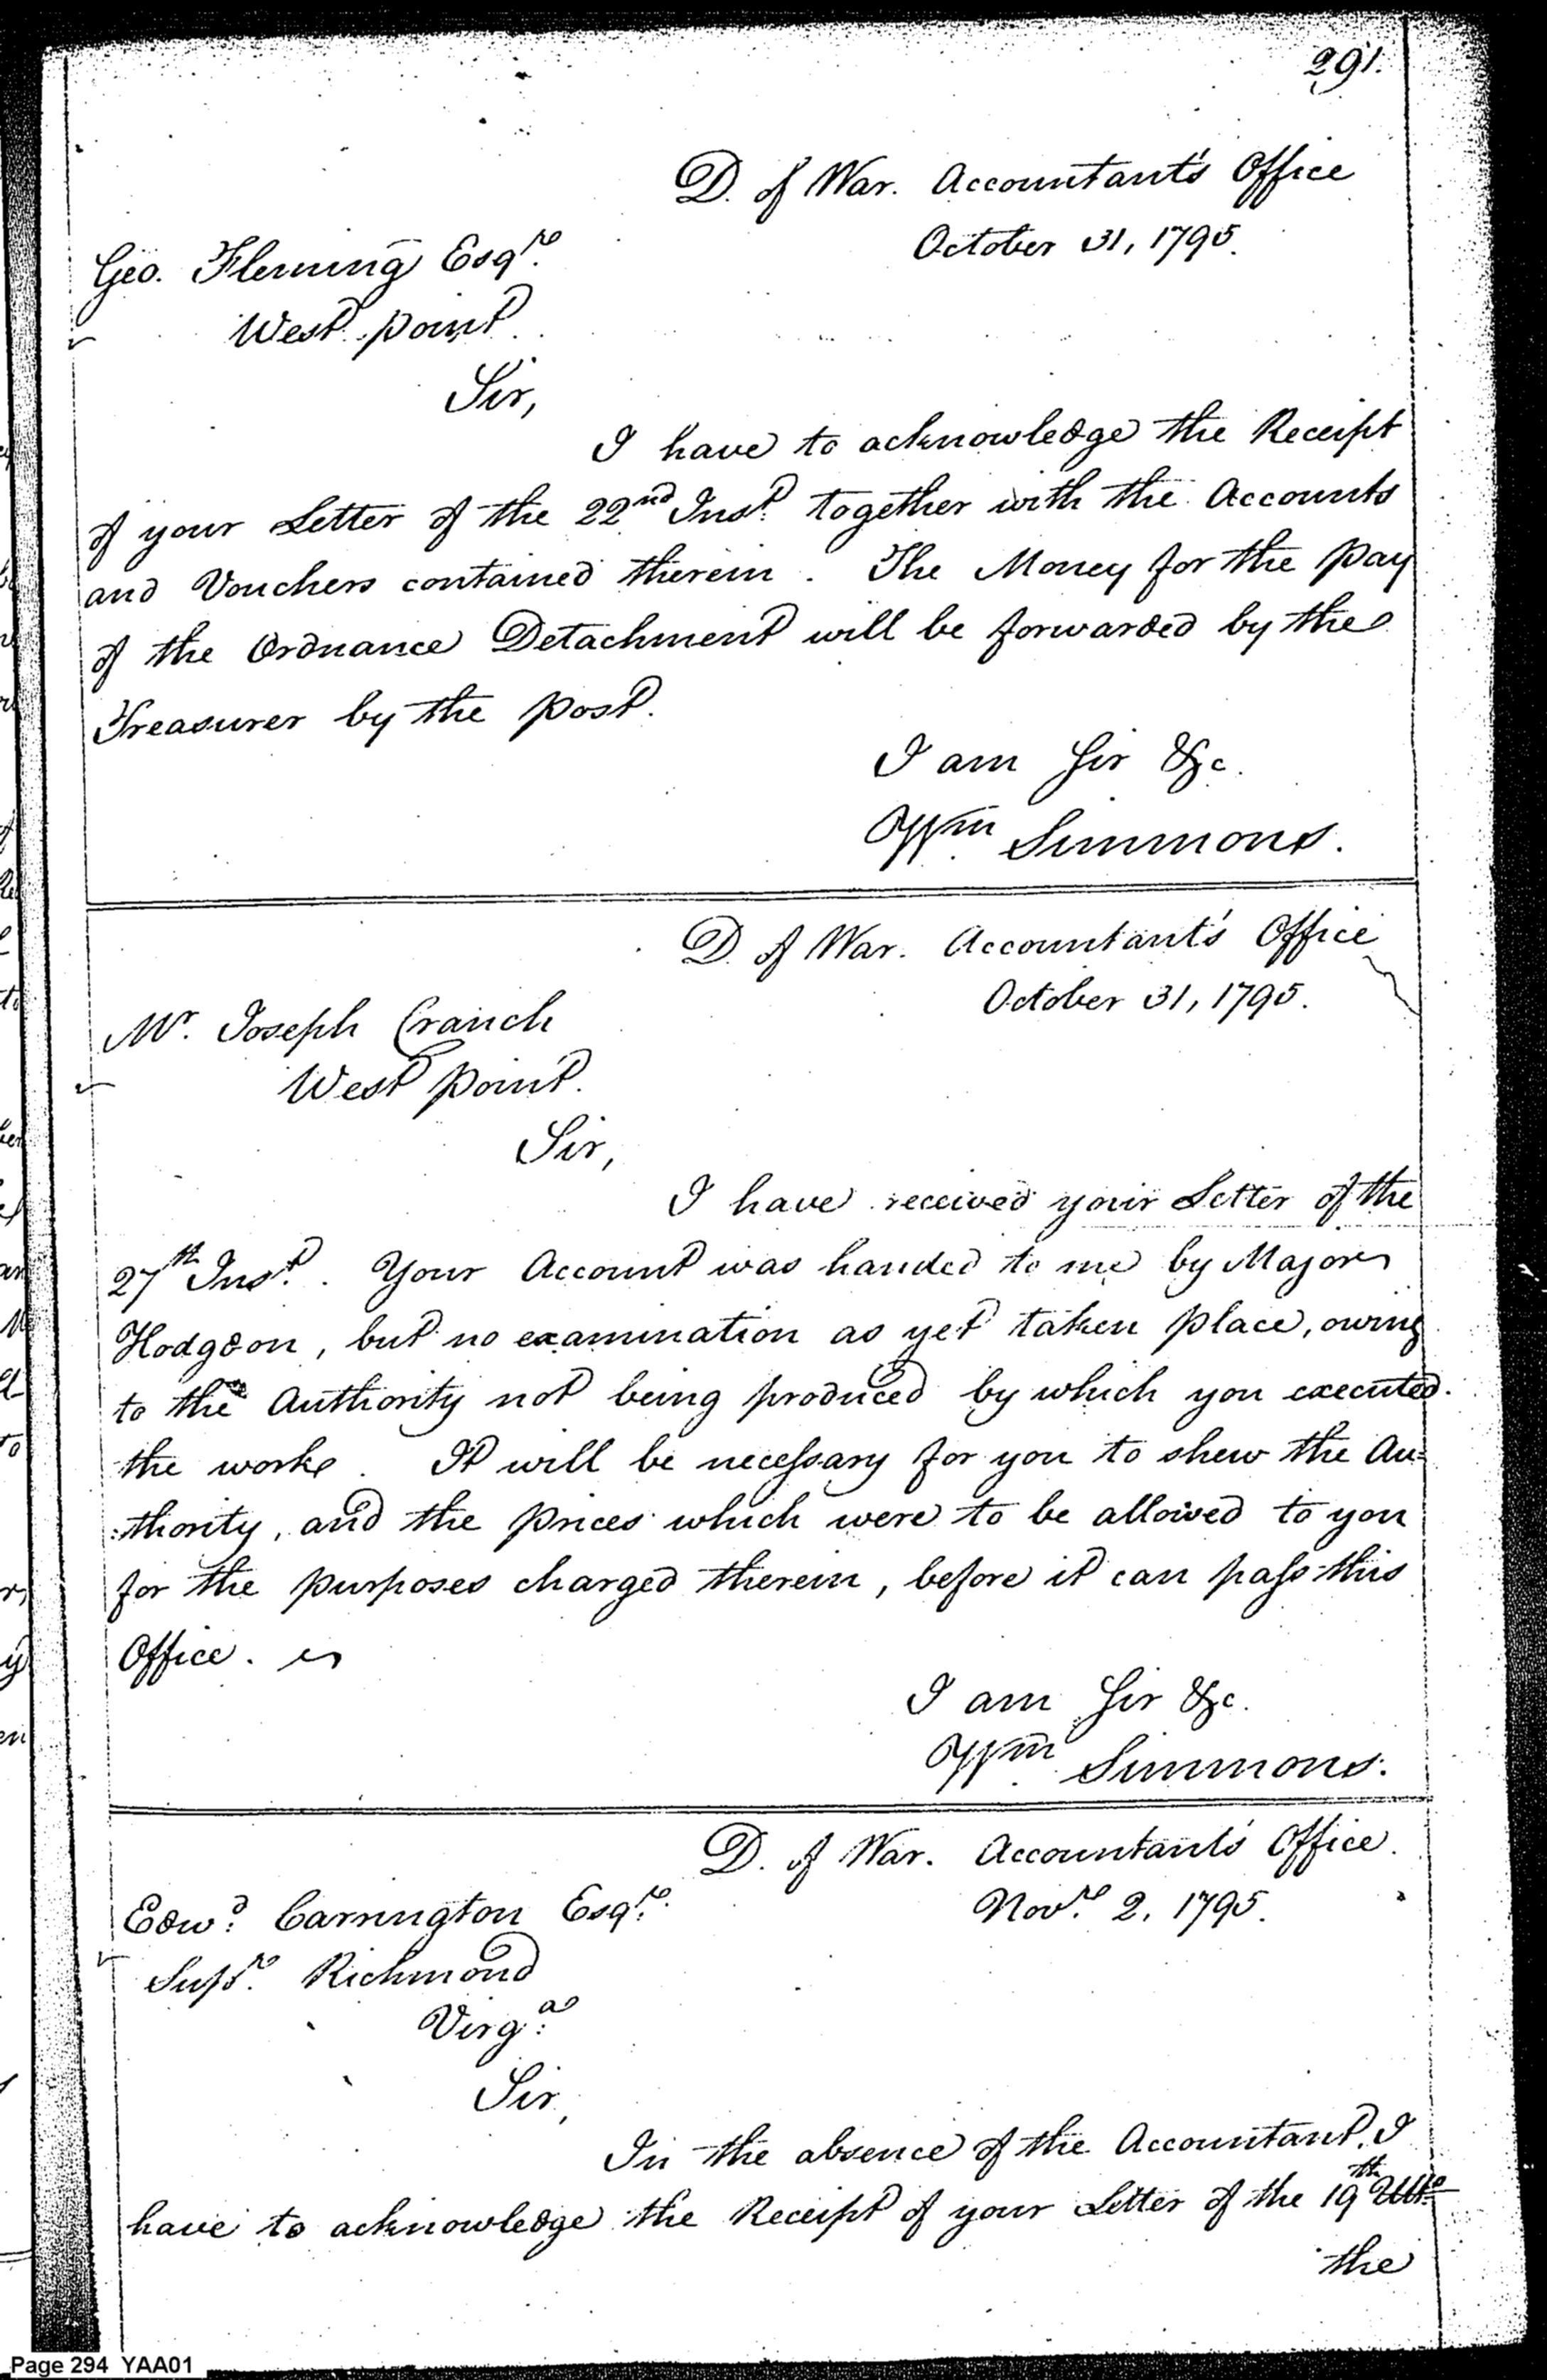 291.
D. of War. Accountant's Office
October 31, 1795.
Geo. Fleming Esqre.
West point.
Sir,
I have to acknowledge the Receipt
of your Letter of the 22nd Inst. together with the Accounts
and Vouchers contained therein. The Money for the pay
of the Ordnance Detachment will be forwarded by the
Treasurer by the post.
I am Sir &c.
Wm Simmons.
D. of War. Accountant's Office
October 31, 1795.
Mr. Joseph Cranch
West point.
Sir,
I have received your Letter of the
27th Inst. Your Account was handed to me by Major
Hodgdon, but no examination as yet taken place, owing
to the Authority not being produced by which you executed
the work. It will be necessary for you to shew the Au=
:thority, and the prices which were to be allowed to you
for the purposes charged therein, before it can pass this
Office.
I am Sir &c.
Wm Simmons.
D. of War. Accountant's Office.
Novre. 2, 1795.
Edwd. Carrington Esqre.
Supre. Richmond
Virga.
Sir,
In the absence of the Accountant, I
have to acknowledge the Receipt of your Letter of the 19th Ulto
the
Page 294 YAA01